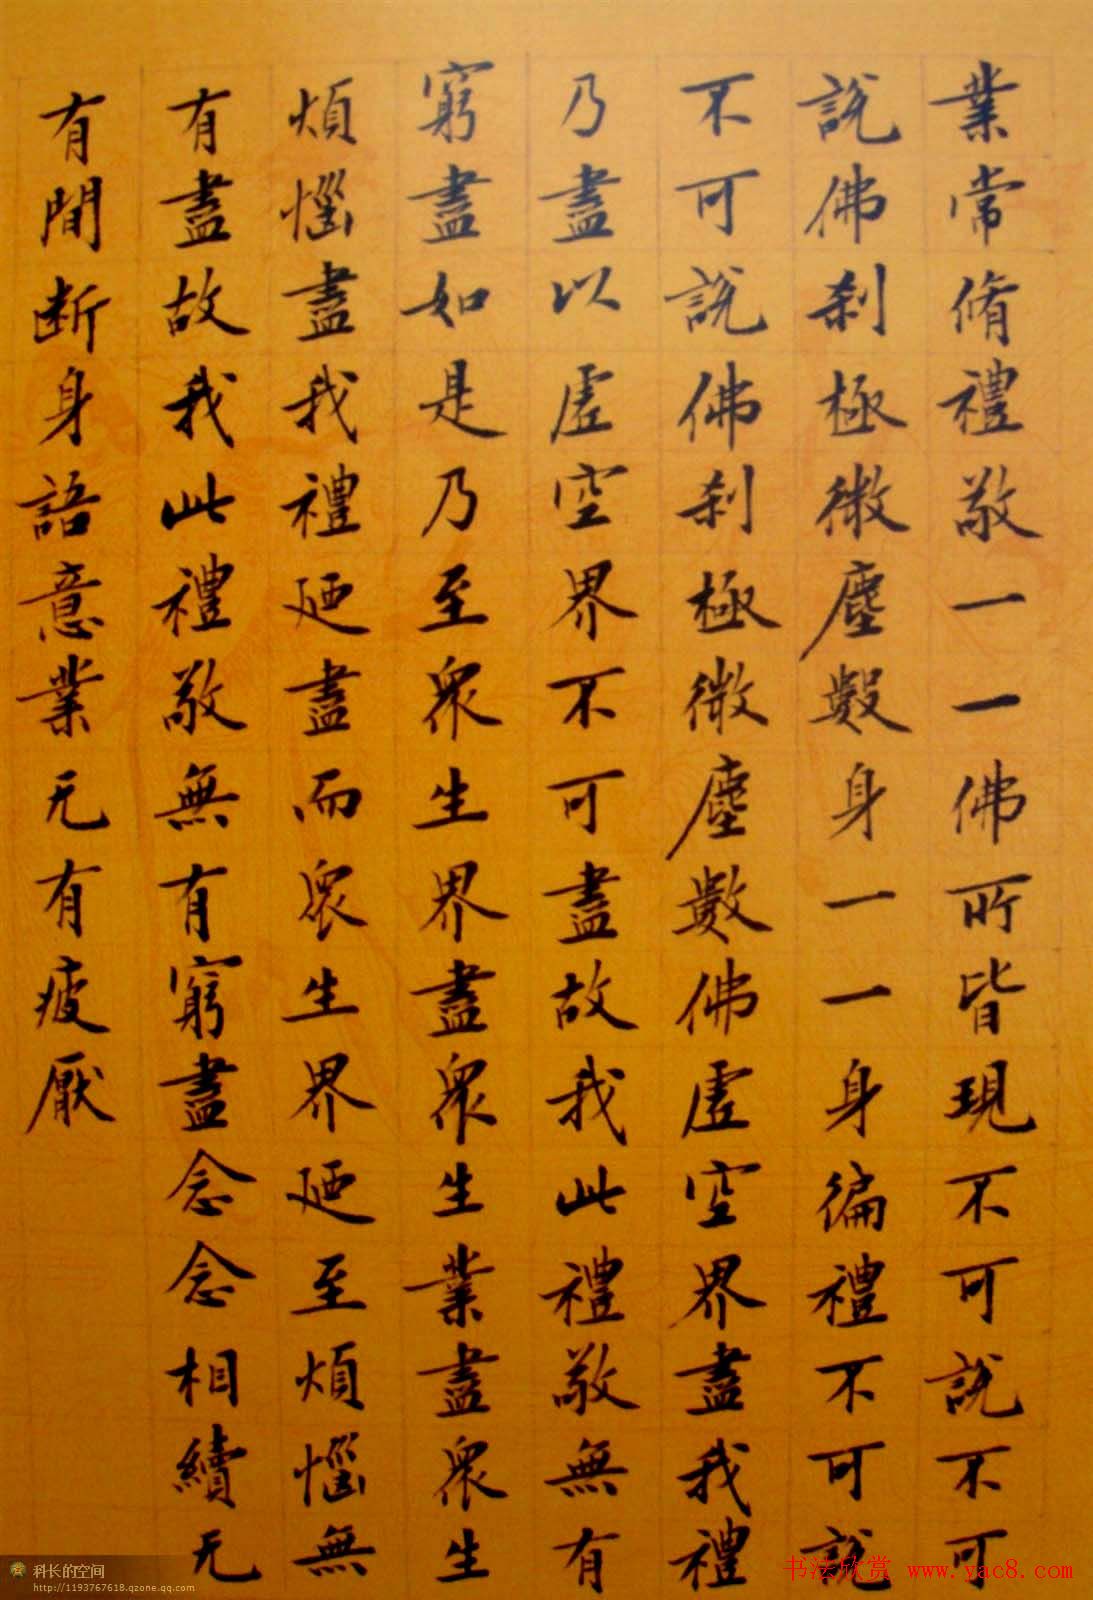 業常脩禮敬一一佛所皆現不可說不可
說佛刹極微塵數身一一身徧禮不可說
不可說佛刹極微塵數佛虛空界盡我禮
乃盡以虛空界不可盡故我此禮敬無有
窮盡如是乃至衆生界盡衆生業盡衆生
煩惱盡我禮廼盡而衆生界廼至煩惱無
有盡故我此禮敬無有窮盡念念相續无
有間断身語意業无有疲厭
科长的空间
http://1193767618.qzone.qq.com
书法欣赏 www.yac8.com